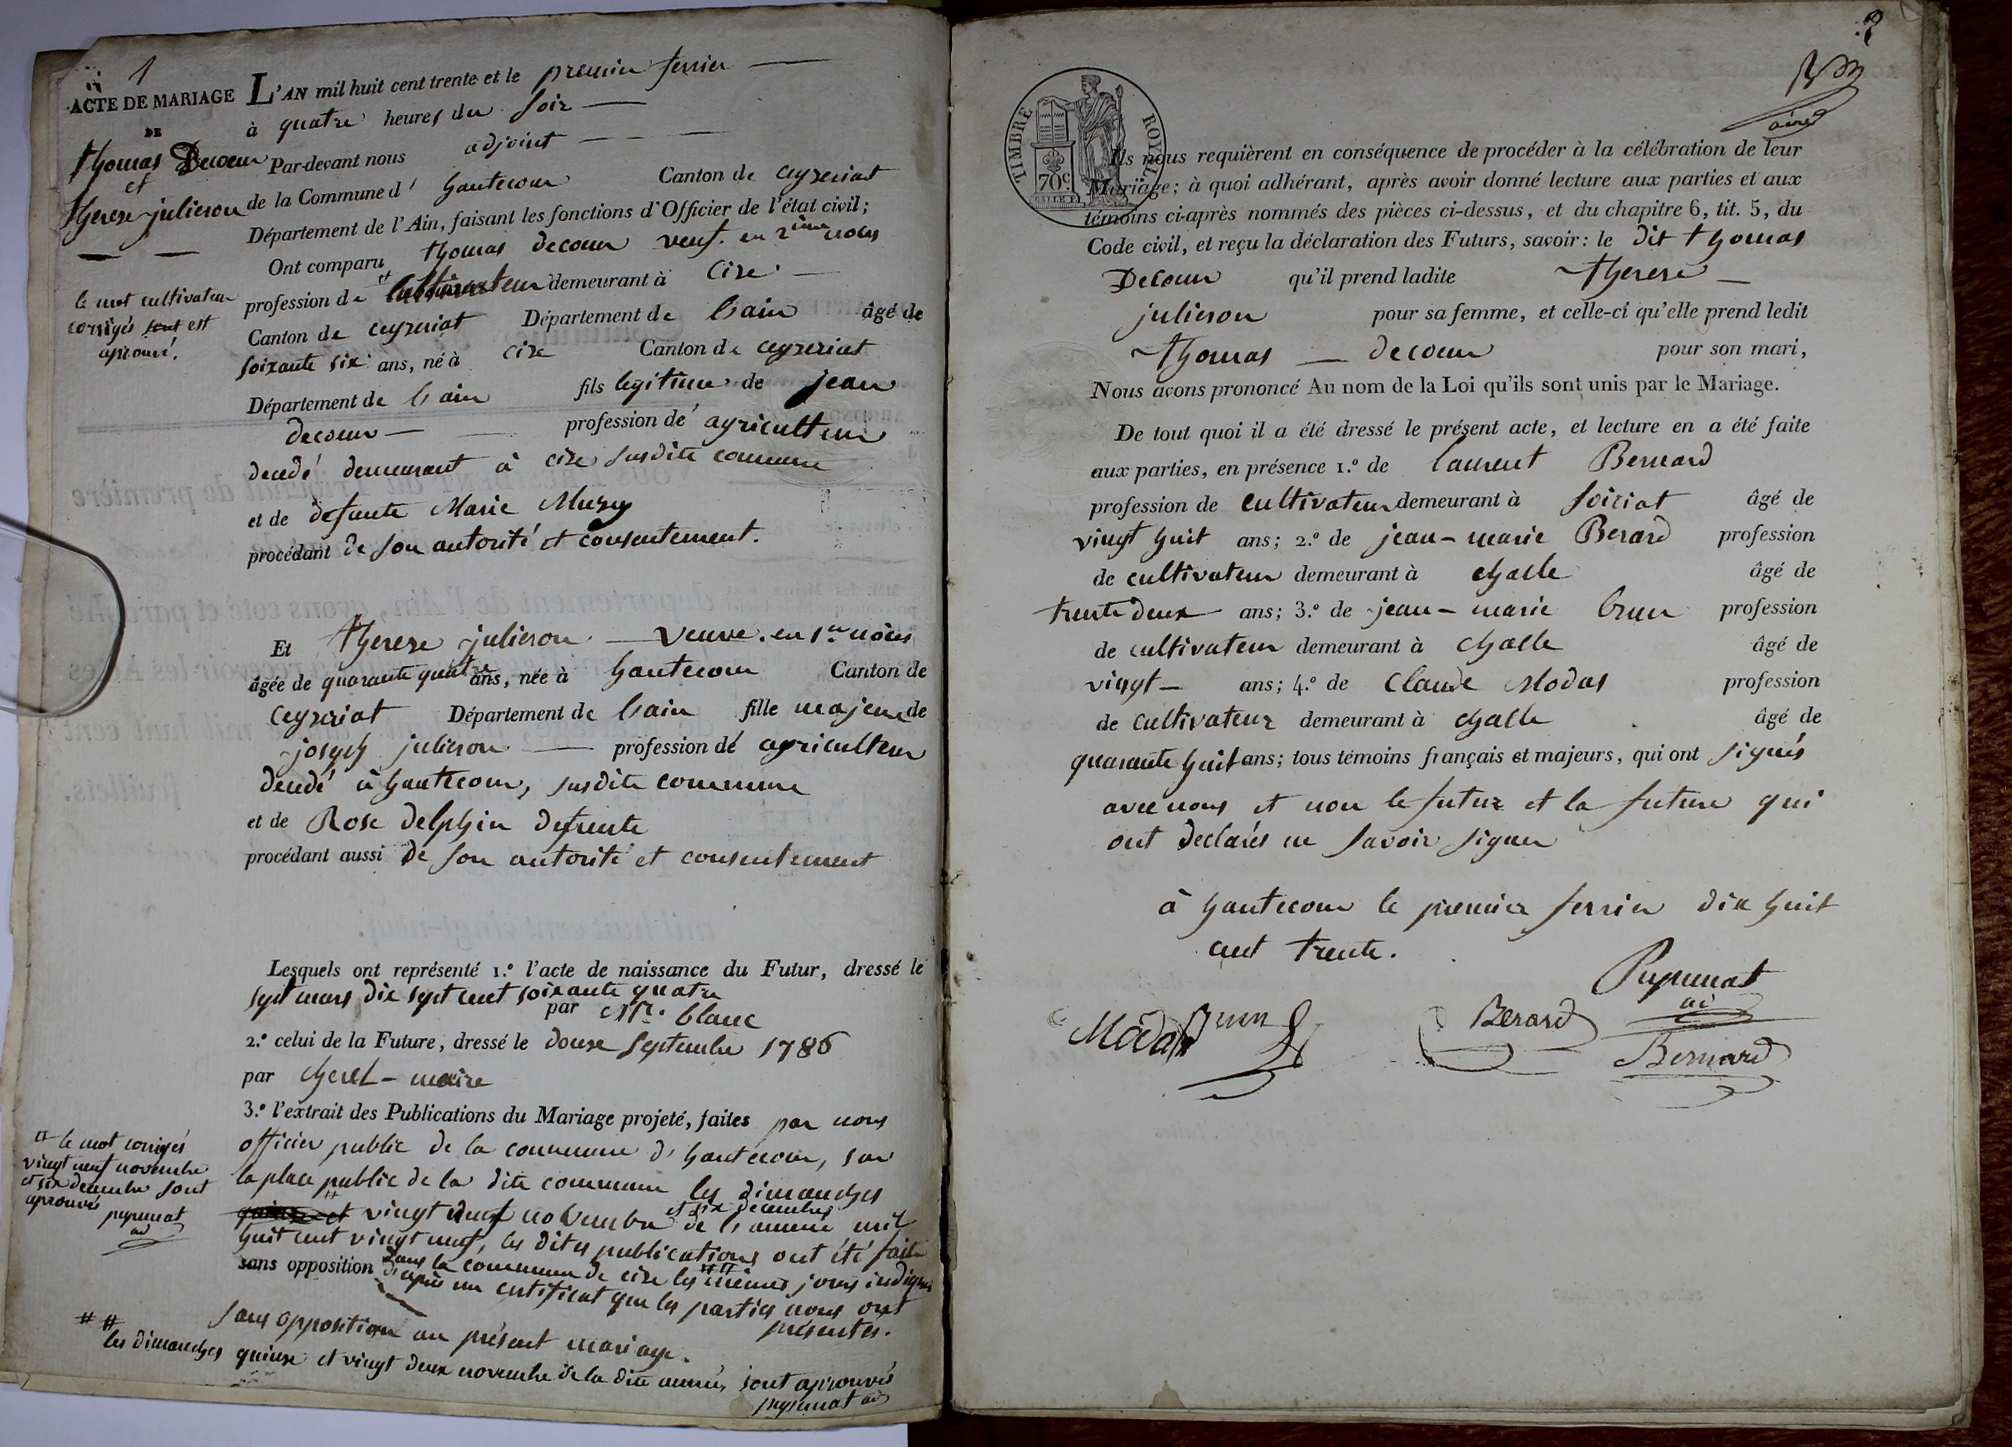 1
ACTE DE MARIAGE
DE
thomas Decoeur
et
therese julieron
le mot cultivateur
corrigés sont est
aprouvé.
L'AN mil huit cent trente et le premier fevrier
à quatre heures du soir
Par-devant nous adjoint
de la Commune d' hautecour Canton de ceyzeriat
Département de l'Ain, faisant les fonctions d'Officier de l'état civil;
Ont comparu thomas decoeur veuf. en 2ieme noces
profession de cultivateur demeurant à cize
Canton de ceyzeriat Département de l'ain âgé de
soixante six ans, né à cize Canton de ceyzeriat
Département de l'ain fils legitime de jean
decoeur profession d' agriculteur
decedé demeurant à cize susdite commune
et de defunte Marie Muzy
procédant de son autorité et consentement.
Et therese julieron veuve. en 1re nôces
âgée de quarante quatre ans, née à hautecour Canton de
ceyzeriat Département de l'ain fille majeure de
joseph julieron profession d' agriculteur
decedé à hautecour, susdite commune
et de Rose delphin defunte
procédant aussi de son autorité et consentement
Lesquels ont représenté 1.º l'acte de naissance du Futur, dressé le
sept mars dix sept cent soixante quatre
par Mr. blanc
2.º celui de la Future, dressé le douze septembre 1786
par cheret - maire
3.º l'extrait des Publications du Mariage projeté, faites par nous
officier public de la commune d'hautecour, sur
la place public de la dite commune les dimanches
vingt neuf novembre et six decembre de l'année mil
huit cent vingt neuf, les dites publications ont été faite
sans opposition dans la commune de cize les mêmes jours indiqués
d'après un certificat que les parties nous ont
présentés.
sans opposition au présent mariage.
¤ le mot corrigés
vingt neuf novembre
et six decembre sont
aprouvés
pupunat
ad
## les dimanches quinze et vingt deux novembre de la dite année, sont aprouvés
pupunat ad
2
TIMBRE ROYAL
70c.
Ils nous requièrent en conséquence de procéder à la célébration de leur
Mariage; à quoi adhérant, après avoir donné lecture aux parties et aux
témoins ci-après nommés des pièces ci-dessus, et du chapitre 6, tit. 5, du
Code civil, et reçu la déclaration des Futurs, savoir: le dit thomas
Decoeur qu'il prend ladite therese
julieron pour sa femme, et celle-ci qu'elle prend ledit
thomas decoeur pour son mari,
Nous avons prononcé Au nom de la Loi qu'ils sont unis par le Mariage.
De tout quoi il a été dressé le présent acte, et lecture en a été faite
aux parties, en présence 1.º de laurent Bernard
profession de cultivateur demeurant à soiriat âgé de
vingt huit ans; 2.º de jean-marie Berard profession
de cultivateur demeurant à challe âgé de
trente deux ans; 3.º de jean-marie brun profession
de cultivateur demeurant à challe âgé de
vingt ans; 4.º de Claude Modas profession
de cultivateur demeurant à challe âgé de
quarante huit ans; tous témoins français et majeurs, qui ont signés
avec nous et non le futur et la future qui
ont declarés ne savoir signer
à hautecour le premier fevrier dix huit
cent trente.
Pupunat
ad
Modas
Brun
Berard
Bernard